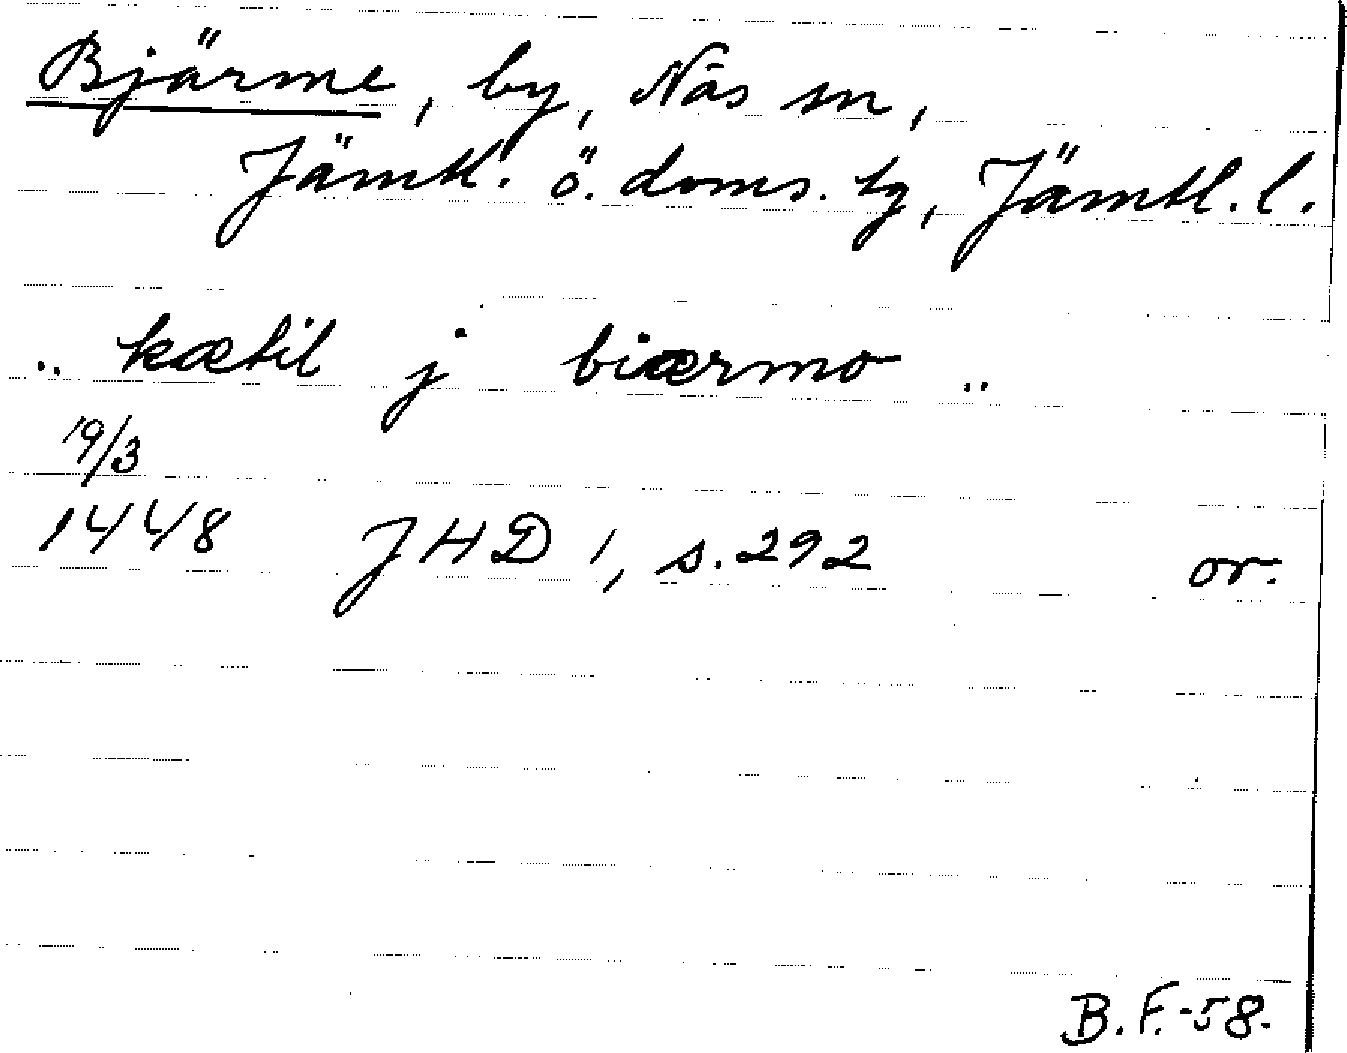 Bjärme, by, Näs sn,
Jämtl. ö. doms. tg, Jämtl. l.
.. kætil j biærmo ..
19/3
1448 JHD 1, s. 292 or.
B.F.-58.